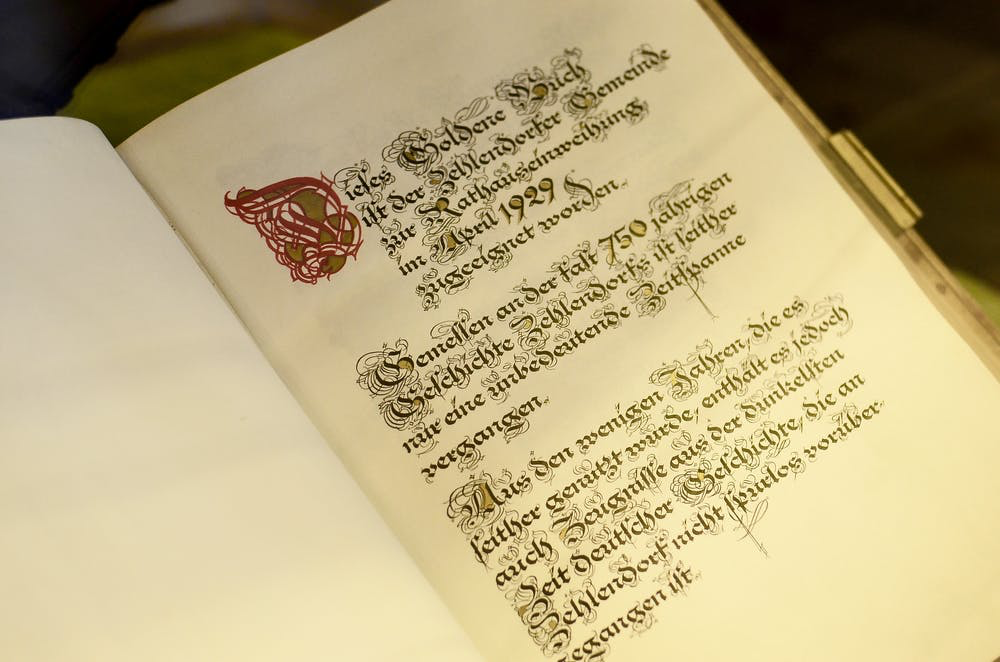 Dieses Goldene Buch
ist der Zehlendorfer Gemeinde
zur Rathauseinweihung
im April 1929 den
zugeeignet worden.
Gemessen an der fast 750 jährigen
Geschichte Zehlendorfs, ist seither
nur eine unbedeutende Zeitspanne
vergangen.
Aus den wenigen Jahren, die es
seither genutzt wurde, enthält es jedoch
auch Zeugnisse aus der dunkelsten
Zeit deutscher Geschichte, die an
Zehlendorf nicht spurlos vorüber-
gegangen ist.